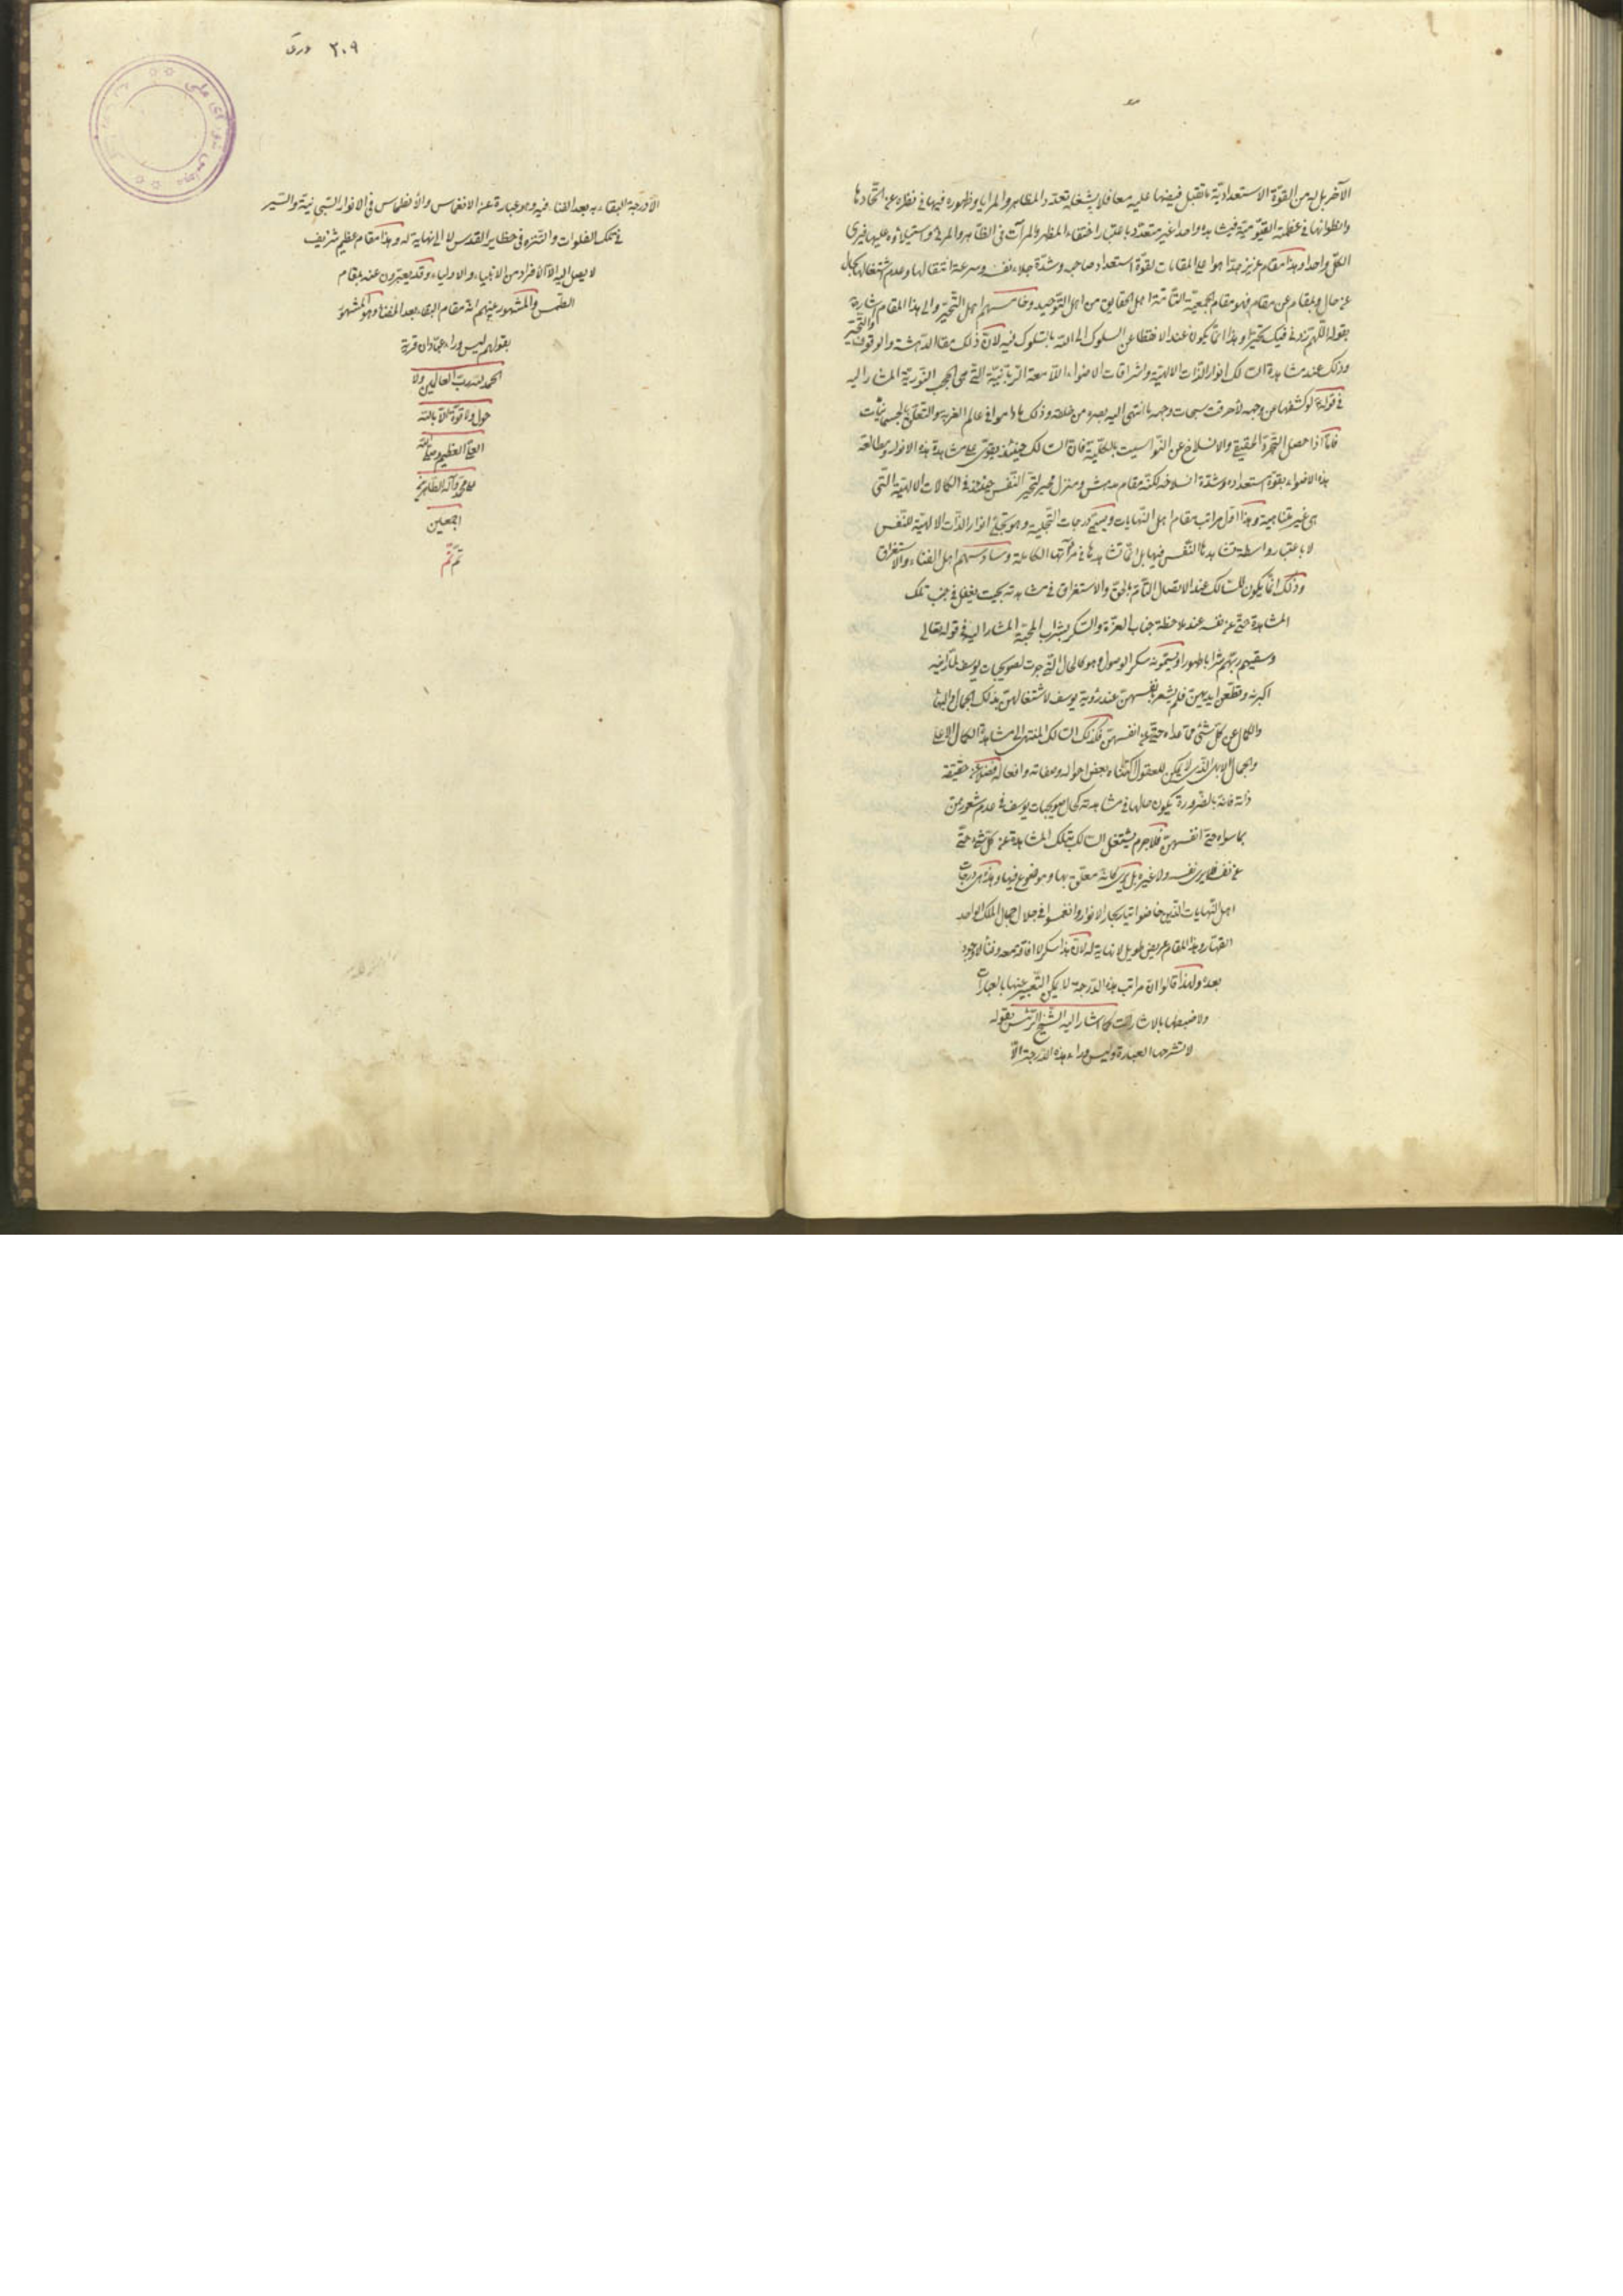 الآخر بل له من القوة الاستعدادية ما تقبل فيضها عليه معا فلا يشغله تعدد المظاهر والمرايا وظهوره فيها في نظره عن اتحادها
وانطوائها في عظمته القيومية فيشاهده واحدا غير متعدد باعتبار اختفاء المظهر والمرآت في الظاهر والمرئي واستيلائه عليها فيرى
الكل واحدا وهذا مقام عزيز جدا هو اعلى المقامات لقوة استعداد صاحبه وشدة جلاء نفسه وسرعة انتقالها وعدم اشتغالها بحال
عن حال وبمقام عن مقام فهو مقام الجمعية التامة اهل الحقايق من اهل التوحيد وخامسهم اهل التحير والى هذا المقام اشارة
بقوله اللهم زدني فيك تحيرا وهذا انما يكون عند الانقطاع عن السلوك الى الله بالسلوك فيه لان ذلك مقام الدهشة والوقوف والتحير
وذلك عند مشاهدة السالك انوار الذات الالهية واشراقات الاضواء اللامعة الربانية التي هي الحجب النورية المشار اليه
في قوله لو كشفها عن وجهه لأحرقت سبحات وجهه ما انتهى اليه بصره من خلقه وذلك ما داموا في عالم الغربة والتعلق بالجسمانيات
فاما اذا حصل التجرد الحقيقي والانسلاخ عن النواسيت بالكلية فان السالك حينئذ يقوى على مشاهدة هذه الانوار ومطالعة
هذه الاضواء بقوة استعداده وشدة انسلاخه لكنه مقام مدهش ومنزل محير لتحير النفس حينئذ في الكمالات الالهية التي
هي غير متناهية وهذا اول مراتب مقام اهل النهايات ويسمى درجات التجلية وهو تجلي انوار الذات الالهية للنفس
لا باعتبار واسطة تشاهدها النفس فيها بل انما تشاهدها في مرآتها الكاملة وسادسهم اهل الفناء والاستغراق
وذلك انما يكون للسالك عند الاتصال التام بالحق والاستغراق في مشاهدته بحيث يغفل في جنب تلك
المشاهدة حتى عن نفسه عند ملاحظة جناب العزة والسكر بشراب المحبة المشار اليه في قوله تعالى
وسقيهم ربهم شرابا طهورا ويسمونه سكر الوصول وهو كالحال التي جرت لصويحبات يوسف لما رأينه
اكبرنه وقطعن ايديهن فلم يشعرن بانفسهن عند رؤية يوسف لاشتغالهن بذلك الجمال والبهاء
والكمال عن كل شئ ما عداه حتى عن انفسهن فكذلك السالك المنتهي الى مشاهدة الكمال الاعلى
والجمال الابهى الذي لا يمكن للعقول اكتناه بعض احواله وصفاته وافعاله فضلا عن حقيقة
ذاته فانه بالضرورة يكون حالها في مشاهدته كحال صويحبات يوسف في عدم شعورهن
بما سواه حتى انفسهن فلا جرم يشتغل السالك بتلك المشاهدة عن كل شئ حتى
عن نفسه فلا يرى نفسه ولا غيره بل يرى كانه معلق بها وموضوع فيها وهذه هي درجات
اهل النهايات الذين خاضوا تيار بحار الانوار وانغمسوا في جلال جمال الملك الواحد
القهار وهذا المقام عريض طويل لا نهاية له لان هذا سكر لا افاقة معه وفناء لا وجود
بعده ولهذا قالوا ان مراتب هذه الدرجة لا يمكن التعبير عنها بالعبارات
ولا ضبطها بالاشارات كما اشار اليه الشيخ الرئيس بقوله
لا تشرحها العبارة وليس وراء هذه الدرجة الا
٢٠٩ ورق
الا درجة البقاء به بعد الفناء فيه وهو عبارة عن الانغماس والانطماس في الانوار السبحانية والسير
في تلك الفلوات والتنزه في حظاير القدس لا الى نهاية له وهذا مقام عظيم شريف
لا يصل اليه الا الافراد من الانبياء والاولياء وقد يعبرون عنه بمقام
الطمس والمشهور عنهم انه مقام البقاء بعد الفناء وهو المشهور
بقولهم ليس وراء عبادان قرية
الحمد لله رب العالمين ولا
حول ولا قوة الا بالله
العلي العظيم وصلى الله
على محمد وآله الطاهرين
اجمعين
تم تم